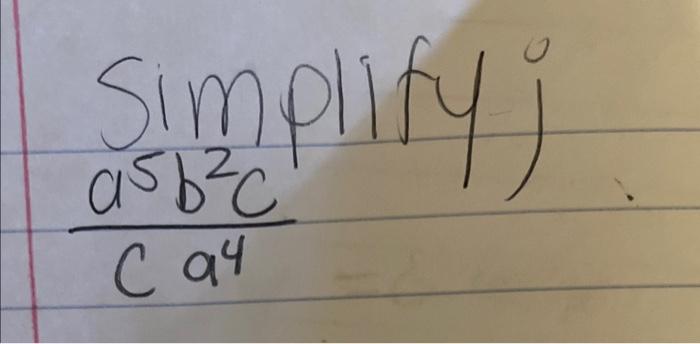 Simplify;
a⁵b²c
c a⁴